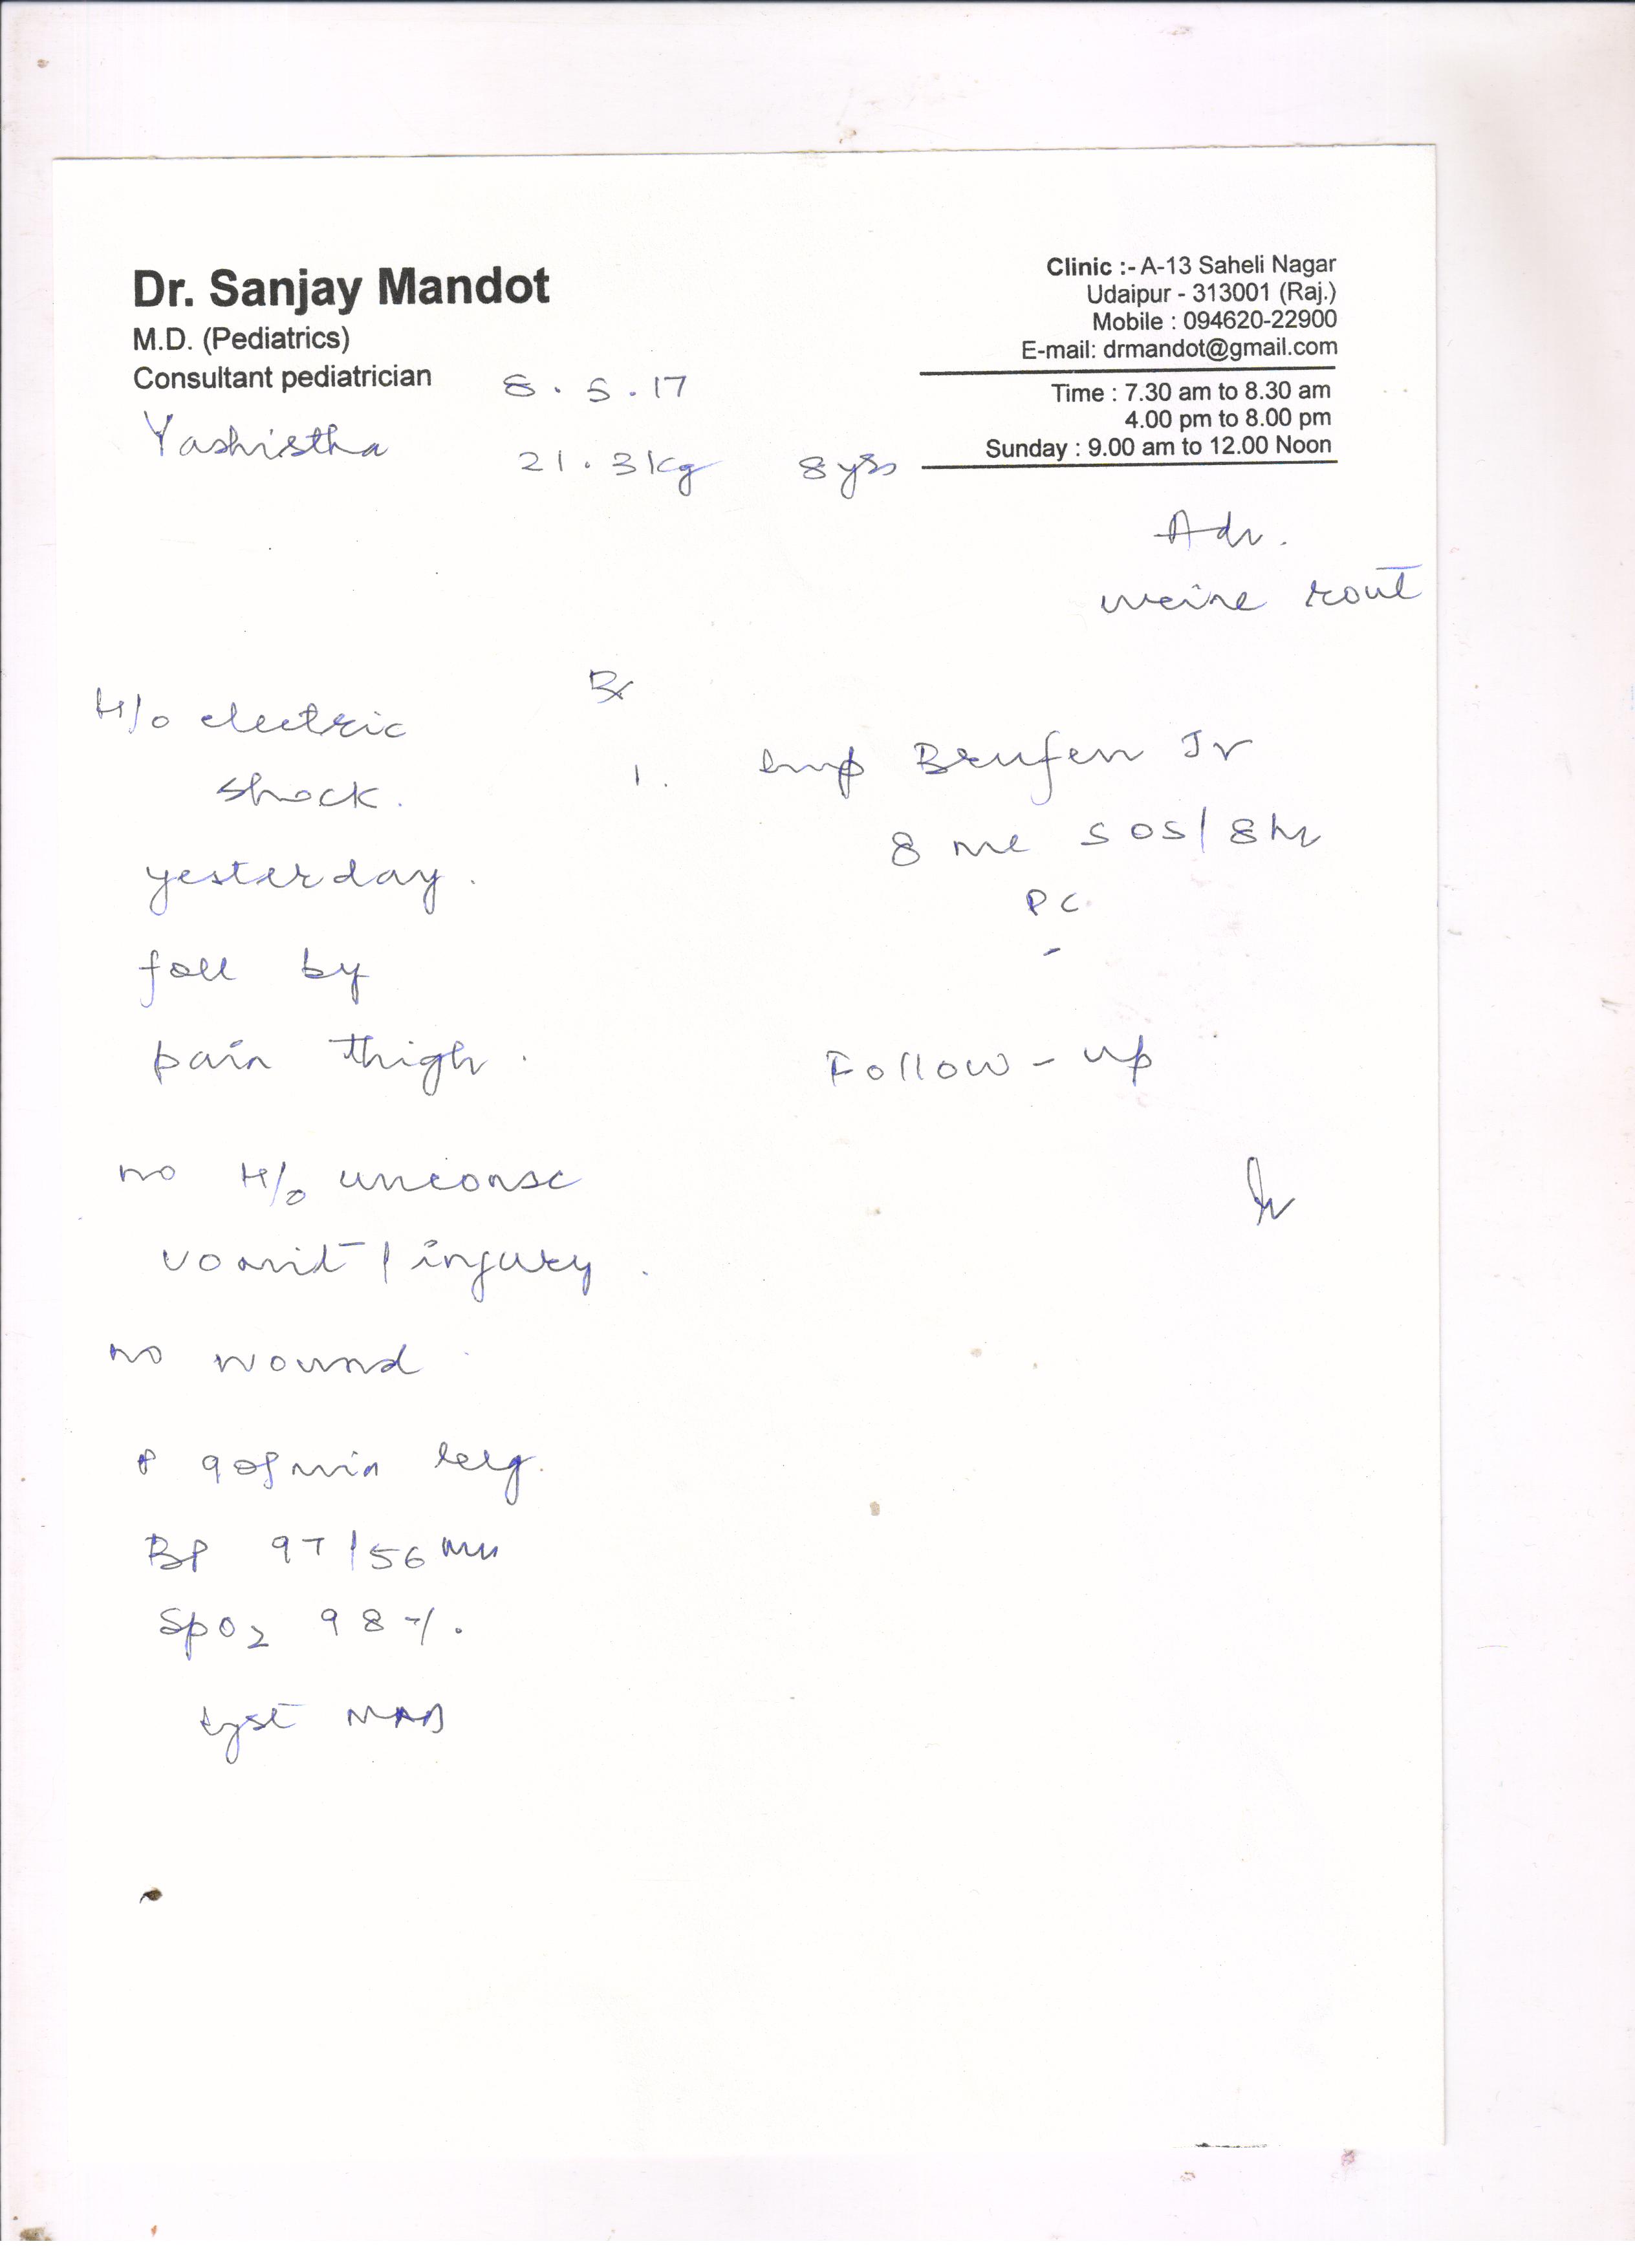 Dr. Sanjay Mandot
M.D. (Pediatrics)
Consultant pediatrician
Clinic :- A-13 Saheli Nagar
Udaipur - 313001 (Raj.)
Mobile : 094620-22900
E-mail: drmandot@gmail.com
Time : 7.30 am to 8.30 am
4.00 pm to 8.00 pm
Sunday : 9.00 am to 12.00 Noon
8.5.17
Yashistha
21.3kg 8yrs
Adv.
urine rout
H/o electric
shock.
yesterday.
foll by
pain thigh.
no H/o unconsc
vomit / injury.
no wound
P 90/min
BP 97/56 mm
SpO2 98%.
syst NAD
Rx
1. Brufen Jr
8 ml SOS/8hr
PC
Follow-up